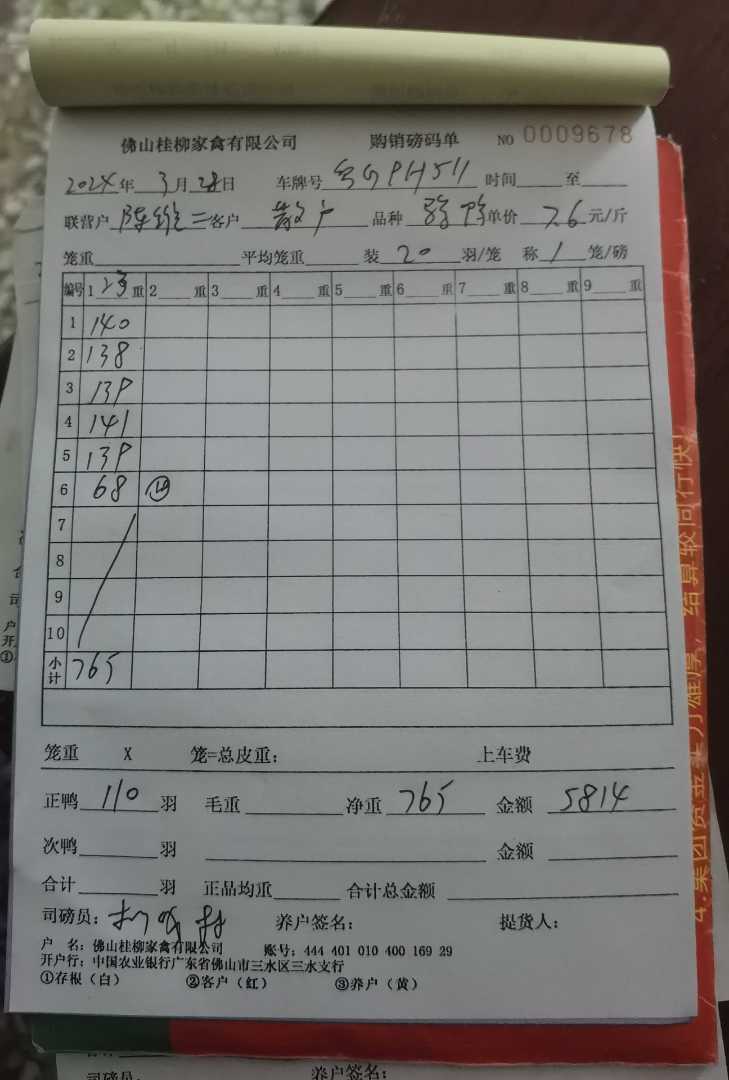 佛山桂柳家禽有限公司 购销磅码单 NO 0009678
2024年 3月 28日 车牌号 PH511 时间 至
联营户 陈维三 客户 散户 品种 单价 7.6 元/斤
笼重 平均笼重 装 20 羽/笼 称 1 笼/磅
编号 1 重 2 重 3 重 4 重 5 重 6 重 7 重 8 重 9 重
1 140
2 138
3 139
4 141
5 139
6 68
7
8
9
10
小计 765
笼重 X 笼=总皮重: 上车费
正鸭 110 羽 毛重 净重 765 金额 5814
次鸭 羽 金额
合计 羽 正品均重 合计总金额
司磅员: 养户签名: 提货人:
户 名: 佛山桂柳家禽有限公司 账号: 444 401 010 400 169 29
开户行: 中国农业银行广东省佛山市三水区三水支行
①存根（白） ②客户（红） ③养户（黄）
司磅员: 养户签名: